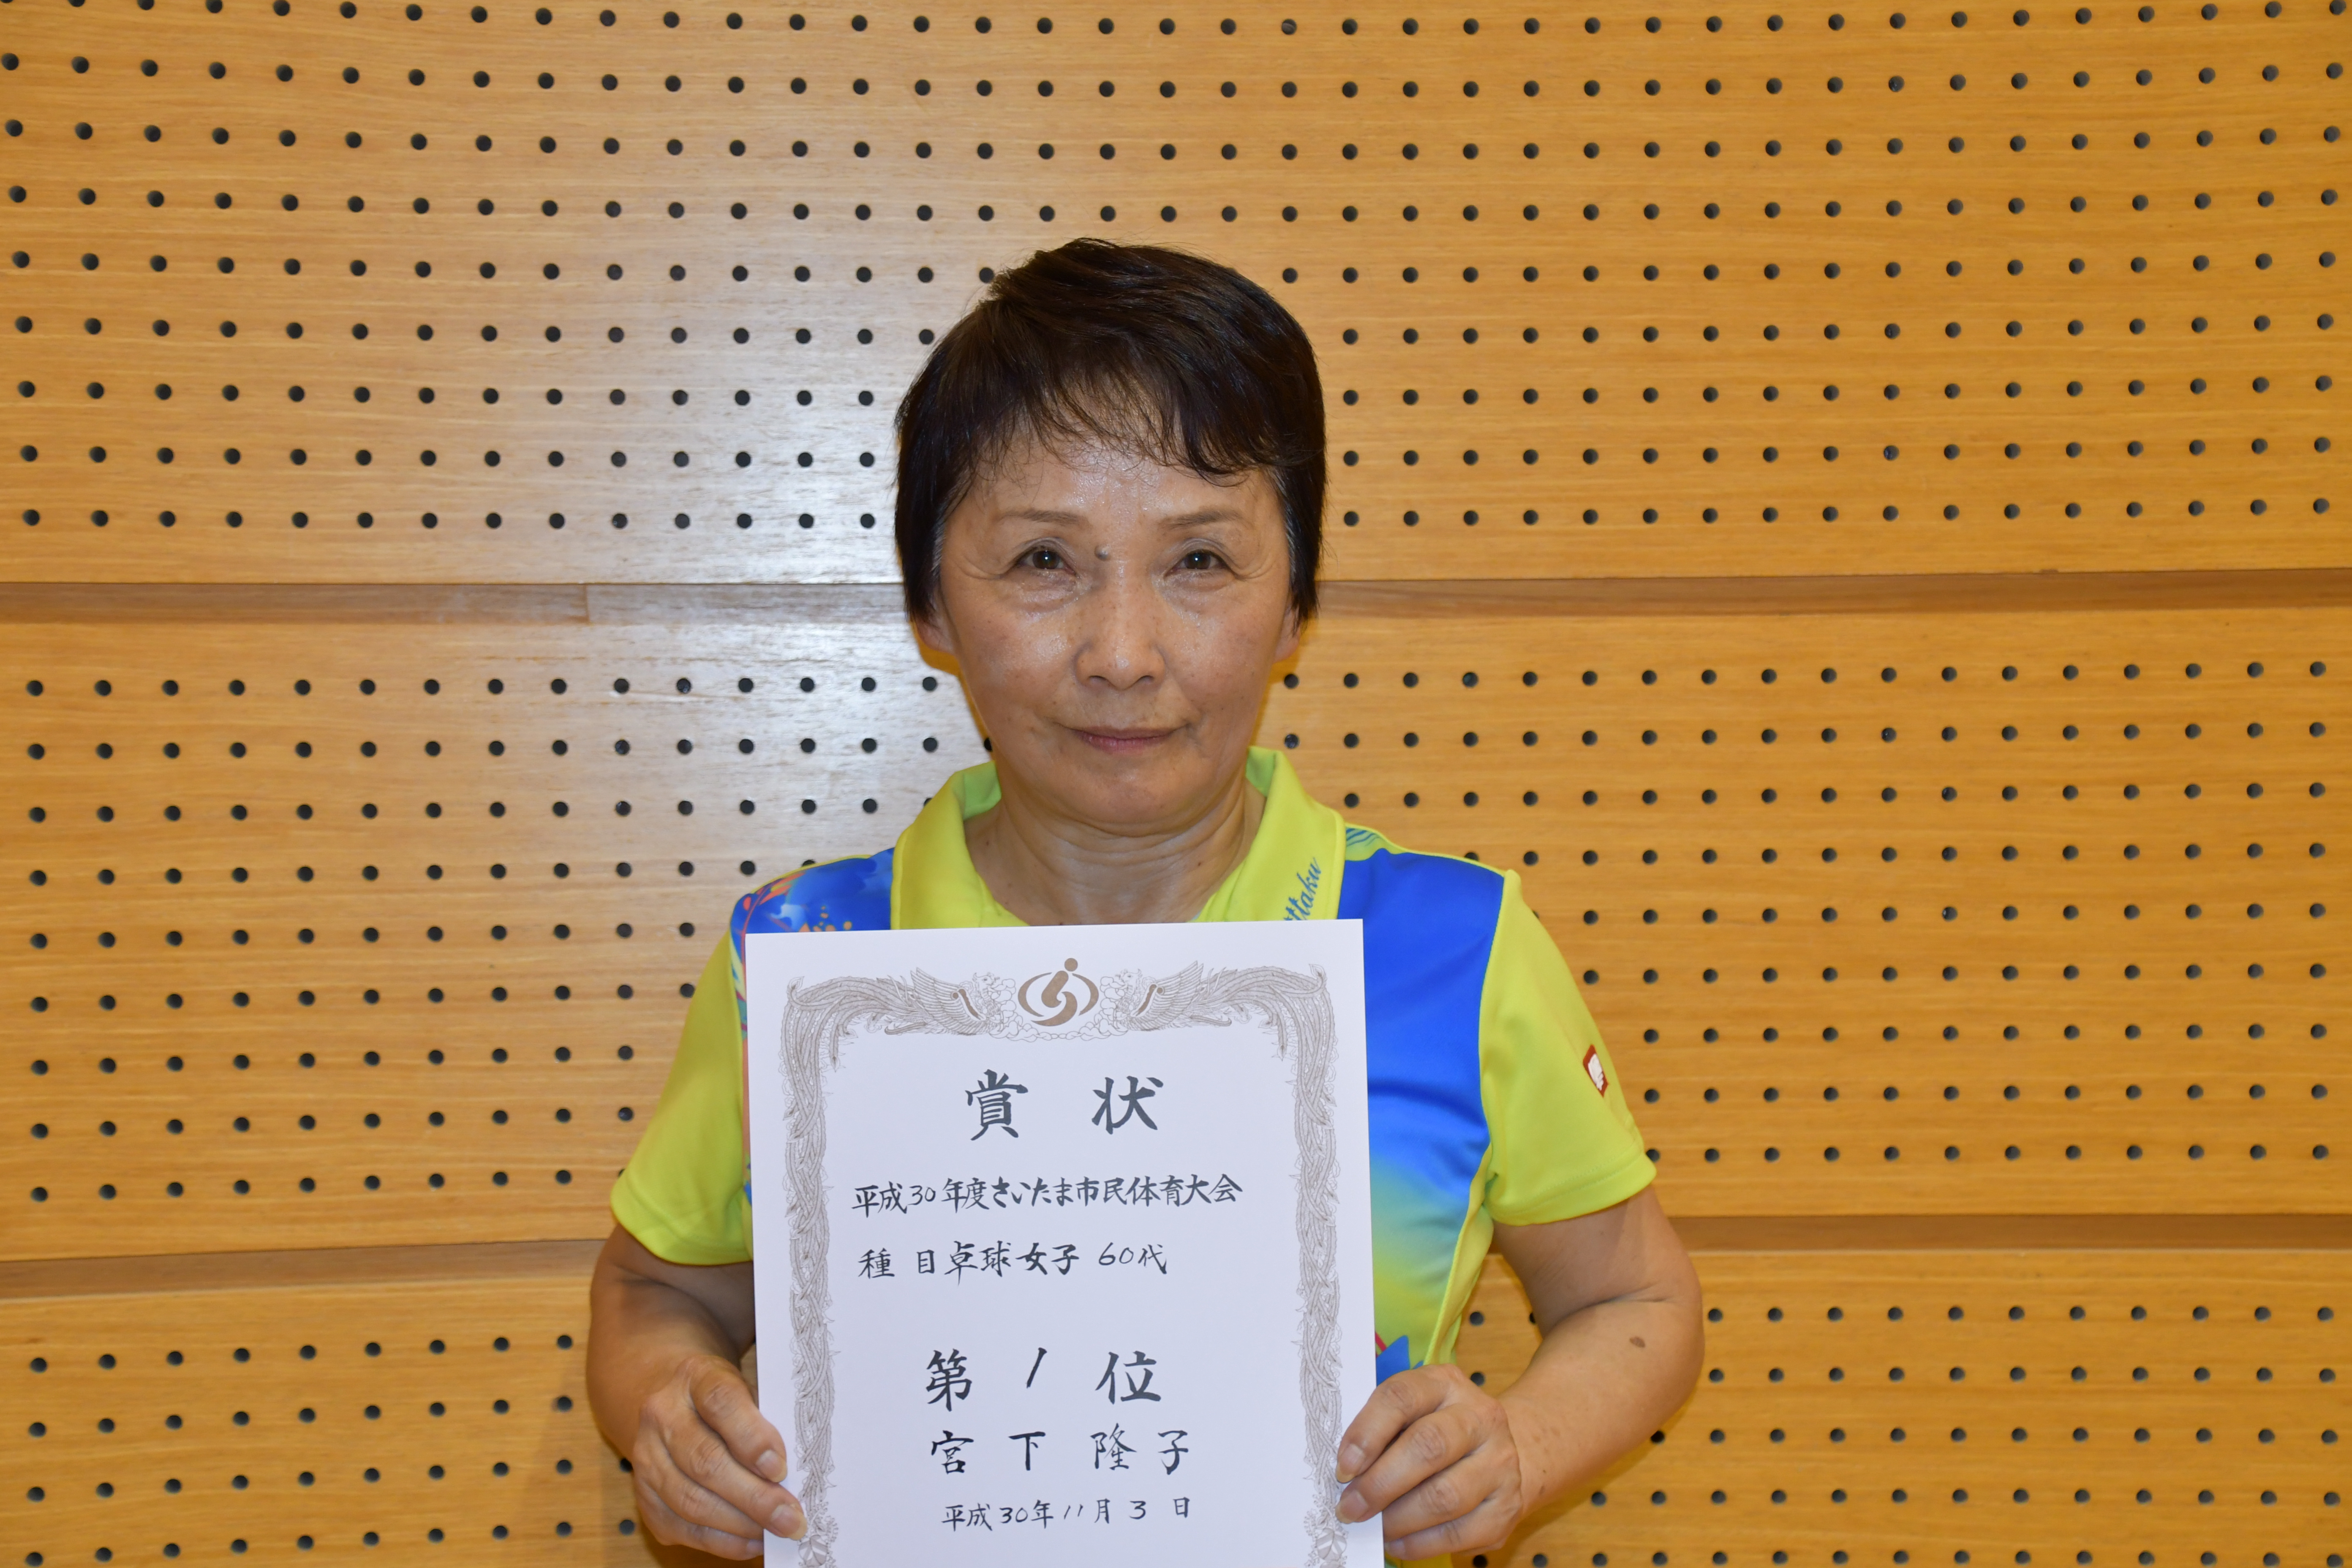 ttaku
賞状
平成30年度さいたま市民体育大会
種目卓球女子 60代
第1位
宮下隆子
平成30年11月3日